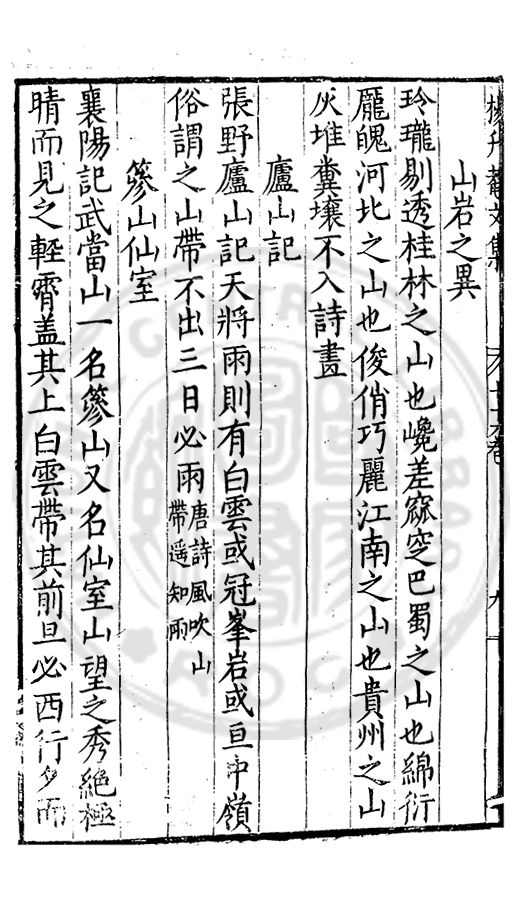 楊升菴文集
六七十七卷
九
山岩之異
玲瓏剔透桂林之山也巉差窳窆巴蜀之山也綿衍
龎魄河北之山也俊俏巧麗江南之山也貴州之山
灰堆糞壤不入詩畫
廬山記
張野廬山記天將雨則有白雲或冠峯岩或亘中嶺
俗謂之山帶不出三日必雨唐詩風吹山帶遥知雨
篸山仙室
襄陽記武當山一名篸山又名仙室山望之秀絶極
晴而見之輕霄盖其上白雲帶其前旦必西行夕而